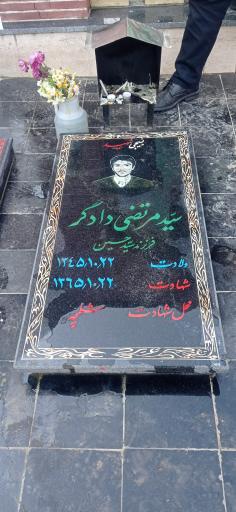 شهید
سید مرتضی دادگر
فرزند سید حسین
ولادت ۱۳۴۵/۱۰/۲۲
شهادت ۱۳۶۵/۱۰/۲۲
محل شهادت شلمچه